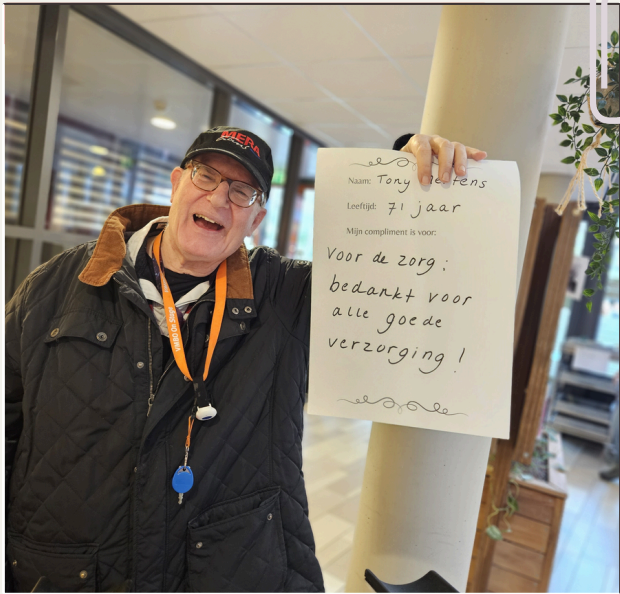 MEBA
Naam: Tony
Leeftijd: 71 jaar
Mijn compliment is voor:
Voor de zorg:
bedankt voor
alle goede
verzorging!